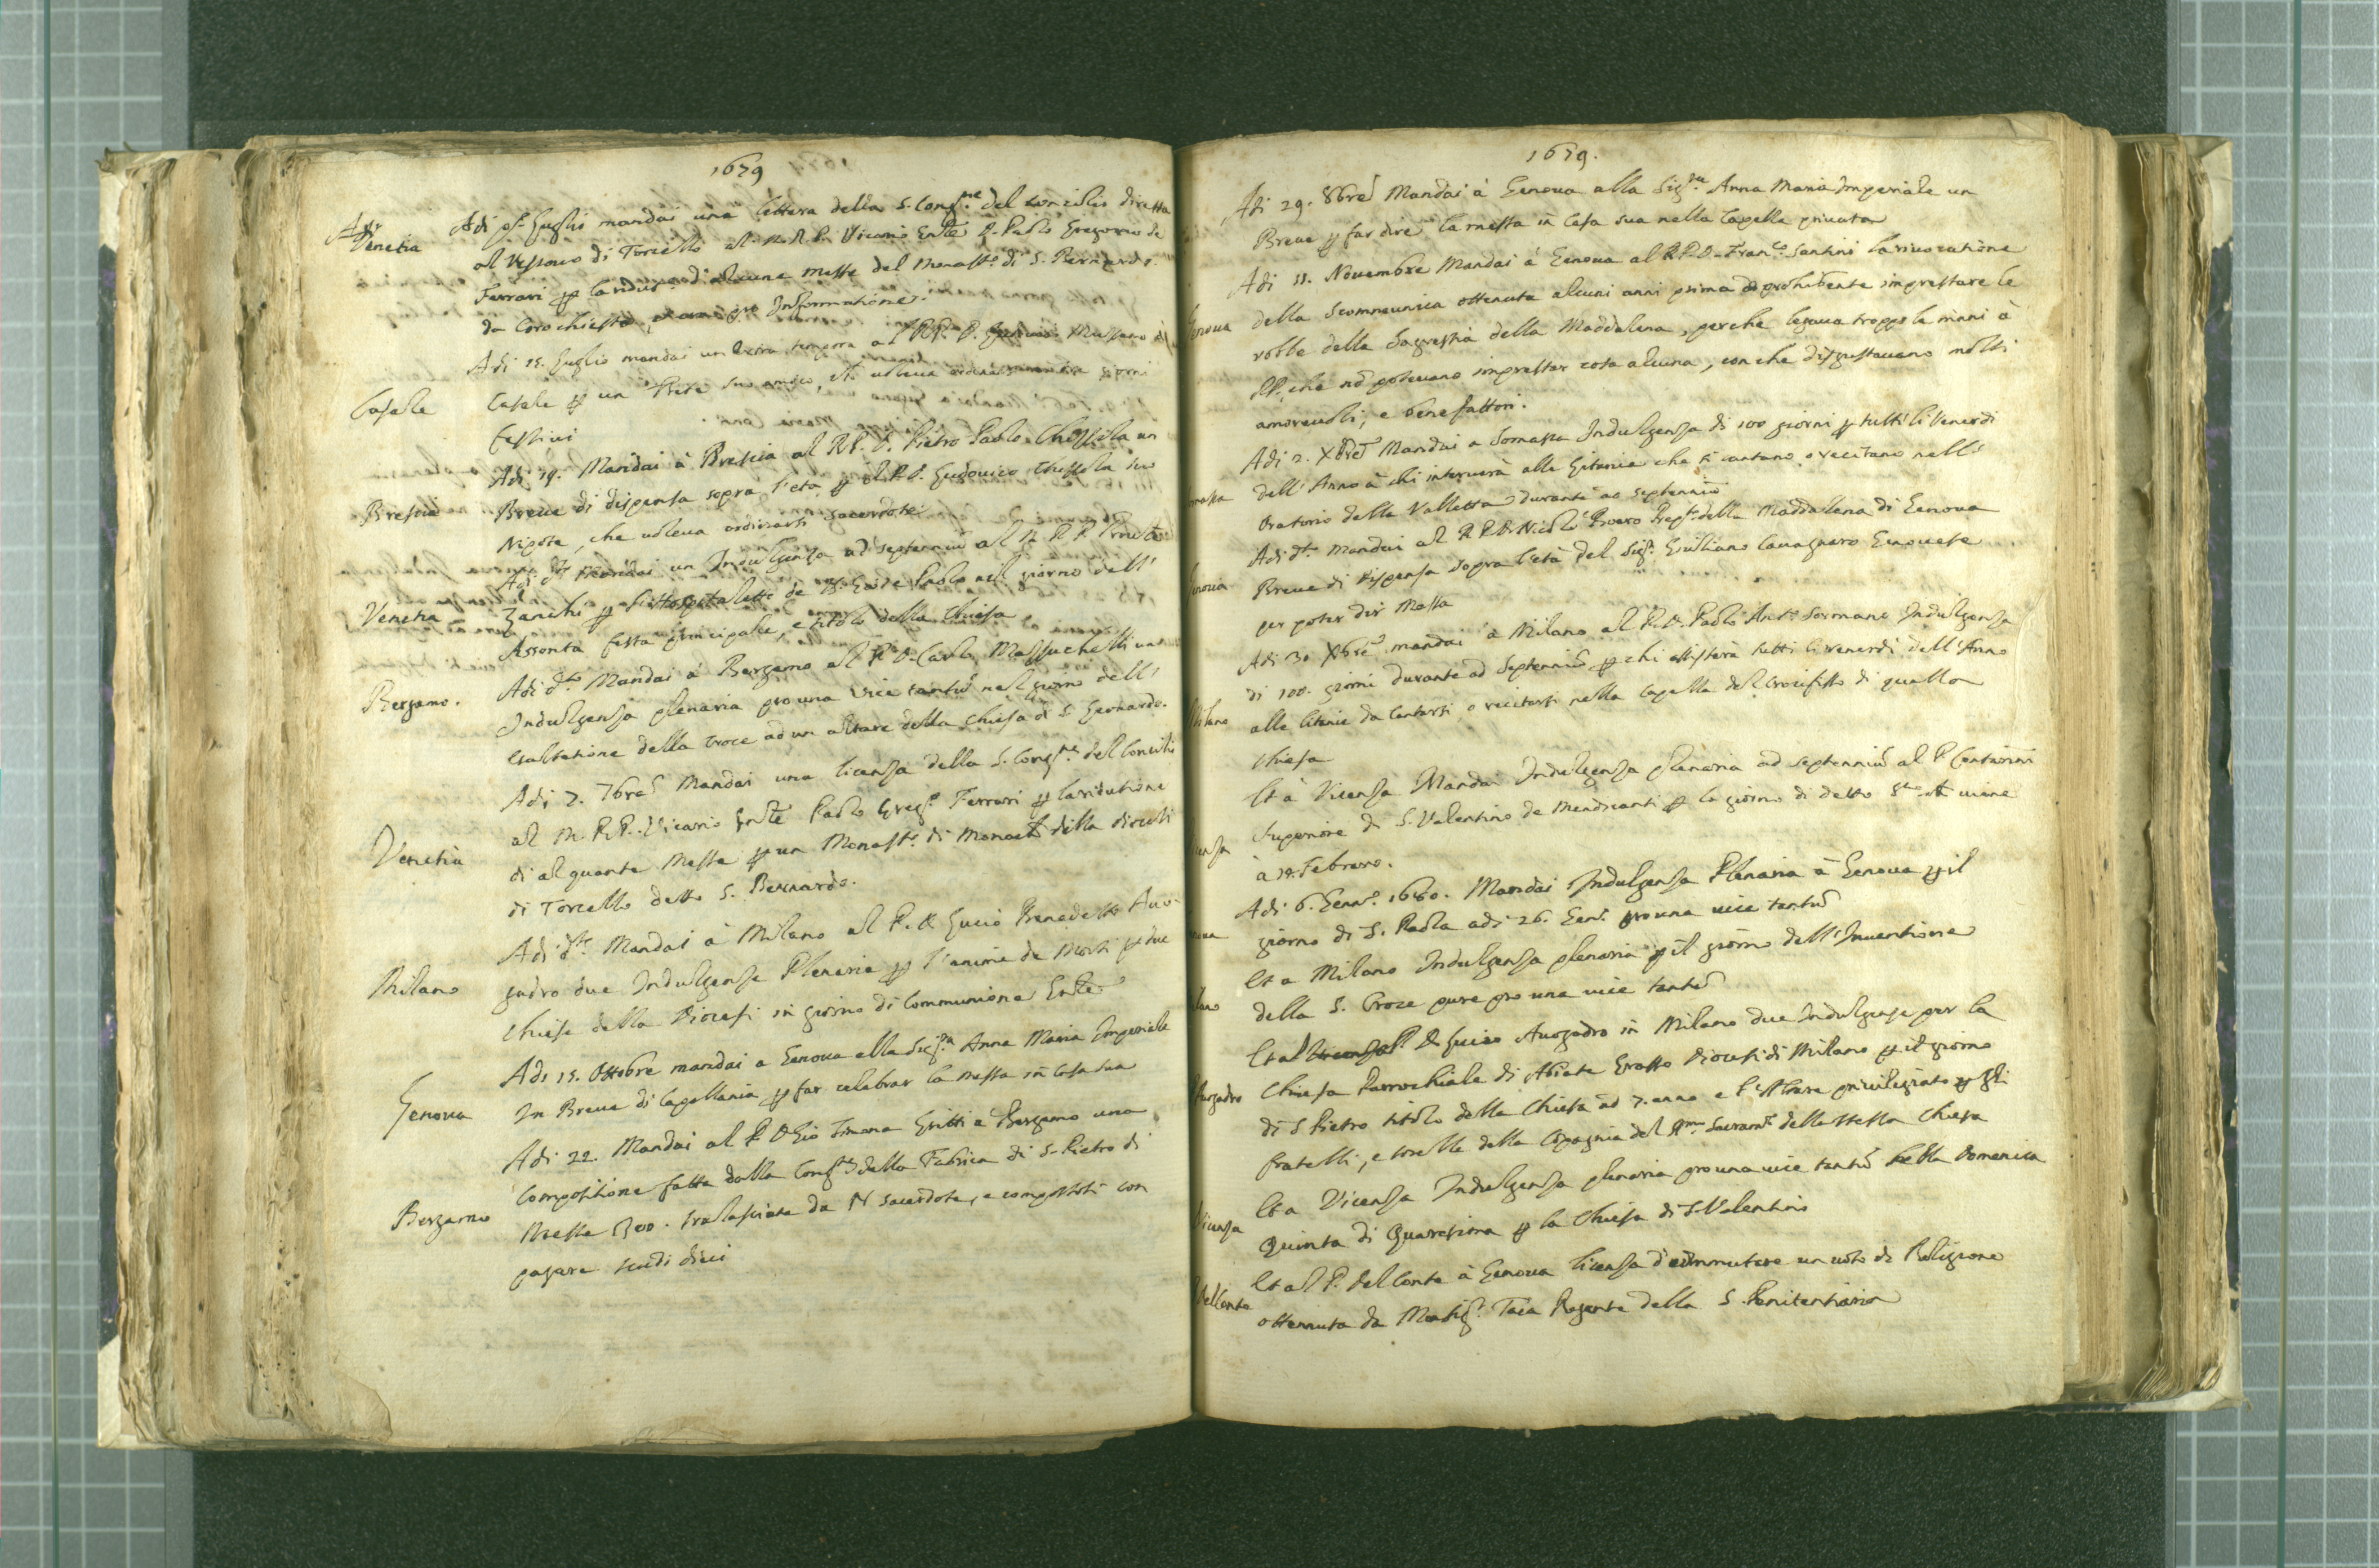 1679
Adi
Venetia
Adi p.º Luglio mandai una lettera della S. Cong.ne del Concilio diretta
al Vescovo di Torcello al M. R. P. Vicario Gnle D. Paolo Gregorio de
Ferrari p la ridut.e di alcune messe del Monast.º di S. Bernardo
da loro chiesta, pro Informatione.
Casale
Adi 15. Luglio mandai un extra tempora al R. P. D. Mussano di
Casale p un Prete suo amico, che voleva ordinarsi giorni
festivi
Brescia
Adi 19. Mandai à Brescia al R. P. D. Pietro Paolo Chizzola un
Breve di dispensa sopra l'età p il P. D. Ludovico Chizzola suo
Nipote, che voleva ordinarsi sacerdote
Venetia
Adi d.º Mandai un Indulgenza ad septenniũ al M. R. P.
Zanchi p l'Hospitaletto de SS. Gio: e Paolo nel giorno dell'
Assonta festa principale, e titolo della Chiesa
Bergamo.
Adi d.º Mandai à Bergamo al P. D. Carlo Mazzuchelli una
Indulgenza plenaria pro una vice tantũ nel giorno dell'
esaltatione della Croce ad un altare della Chiesa di S. Leonardo.
Venetia
Adi 7. 7bre Mandai una licenza della S. Cong.ne del Concilio
al M. R. P. Vicario Gnle Paolo Greg.º Ferrari p la ridutione
di alquante Messe p un Monast.º di Monache della diocesi
di Torcello detto S. Bernardo.
Milano
Adi d.º Mandai à Milano al P. D. Lucio Benedetto Avo-
gadro due Indulgenze Plenarie p l'anime de Morti p due
Chiese della Diocesi in giorno di Communione Gnle
Genova
Adi 15. Ottobre mandai a Genova alla Sig.ra Anna Maria Imperiale
Un Breve di Capellania p far celebrar la Messa in Casa sua
Bergamo
Adi 22. Mandai al P. D. Gio: Simone Gritti à Bergamo una
Compositione fatta dalla Cong.ne della Fabrica di S. Pietro di
Messe 1300. tralasciate da N Sacerdote, e compostosi con
pagare scudi dieci
1679.
Adi 29. 8bre Mandai à Genova alla Sig.ra Anna Maria Imperiale un
Breve p far dire la messa in Casa sua nella Capella privata
Genova
Adi 11. Novembre Mandai à Genova al R. P. D. Fran.co Santini la rivocatione
della Scommunica ottenuta alcuni anni prima prohibente imprestare le
robbe della Sagrestia della Maddalena, perche legava troppo le mani à
PP. che nõ potevano imprestar cosa alcuna, con che disgustavano molti
amorevoli, e benefattori.
omasca
Adi 2. Xbre Mandai a Somasca Indulgenza di 100 giorni p tutti li Venerdi
dell'Anno à chi interverà alle Litanie che si cantano, o recitano nell'
Oratorio della Valletta durante ad septenniũ
enova
Adi d.º Mandai al R. P. D. Nicolò Boero Prep.to della Maddalena di Genova
Breve di dispensa sopra l'età del Sig.r Giuliano Cavagnaro Genovese
per poter dir Messa
Milano
Adi 30 Xbre mandai à Milano al P. D. Paolo Ant.º Sormano Indulgenza
di 100. giorni durante ad Septenniũ p chi assisterà tutti li venerdi dell'Anno
alle litanie da Cantarsi, o recitarsi nella Capella del Crocifisso di quella
Chiesa
enza
Et à Vicenza Mandai Indulgenza plenaria ad septenniũ al P. Contarini
Superiore di S. Valentino de Mendicanti p lo giorno di detto S.to che viene
à 14. Febraro.
ova
Adi 6. Genn.º 1680. Mandai Indulgenza Plenaria à Genova p il
giorno di S. Paola adi 26. Gen.º pro una vice tantũ
lano
Et a Milano Indulgenza plenaria p il giorno dell'Inventione
della S. Croce pure pro una vice tantũ
Avogadro
Et al P. D. Lucio Avogadro in Milano due Indulgenze per la
Chiesa Parrochiale di Abiate Grasso Diocesi di Milano p il giorno
di S. Pietro titolo della Chiesa ad 7. anno e l'Altare privilegiato p gli
fratelli, e sorelle della Cõpagnia del S.mo Sacram.to della stessa Chiesa
Vicenza
Et a Vicenza Indulgenza plenaria pro una vice tantũ nella Domenica
Quinta di Quaresima p la Chiesa di S. Valentino
Del Conte
Et al P. Del Conte à Genova licenza di commutare un voto di Religione
ottenuta da Monsig.r Taia Regente della S. Penitentiaria